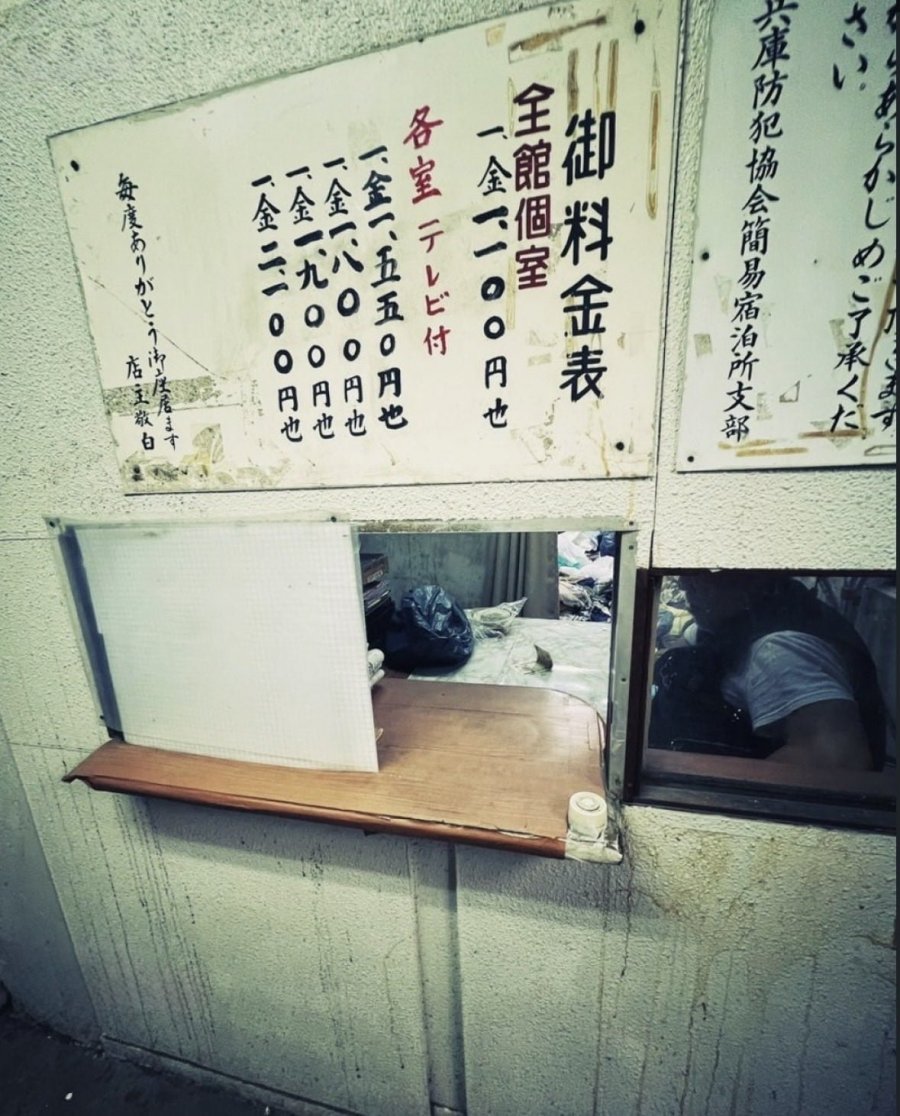 ます
からあらかじめご了承くだ
さい
兵庫防犯協会簡易宿泊所支部
御料金表
全館個室
一、金一、一〇〇円也
各室テレビ付
一、金一、五五〇円也
一、金一、八〇〇円也
一、金一、九〇〇円也
一、金二、一〇〇円也
毎度ありがとう御座居ます
店主敬白